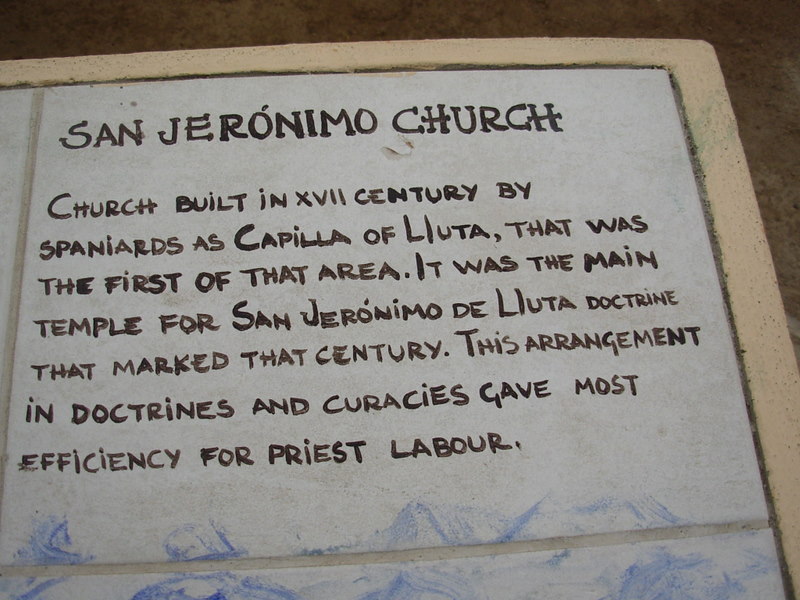 SAN JERÓNIMO CHURCH
CHURCH BUILT IN XVII CENTURY BY
SPANIARDS AS CAPILLA OF LLUTA, THAT WAS
THE FIRST OF THAT AREA. IT WAS THE MAIN
TEMPLE FOR SAN JERÓNIMO DE LLUTA DOCTRINE
THAT MARKED THAT CENTURY. THIS ARRANGEMENT
IN DOCTRINES AND CURACIES GAVE MOST
EFFICIENCY FOR PRIEST LABOUR.